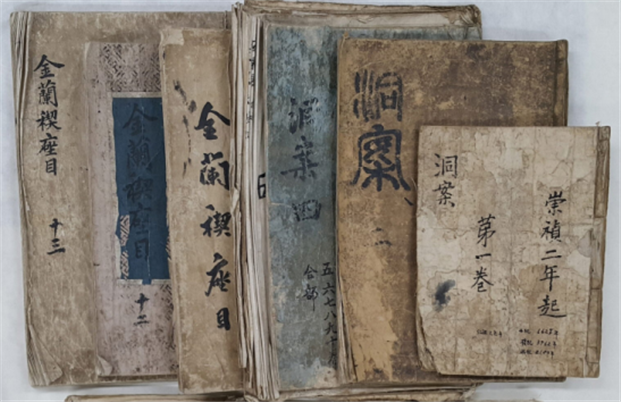 金蘭禊座目
十三
金蘭禊座目
十二
金蘭禊座目
洞案四
五六七八九十
合部
洞案
二
崇禎二年起
洞案
第一巻